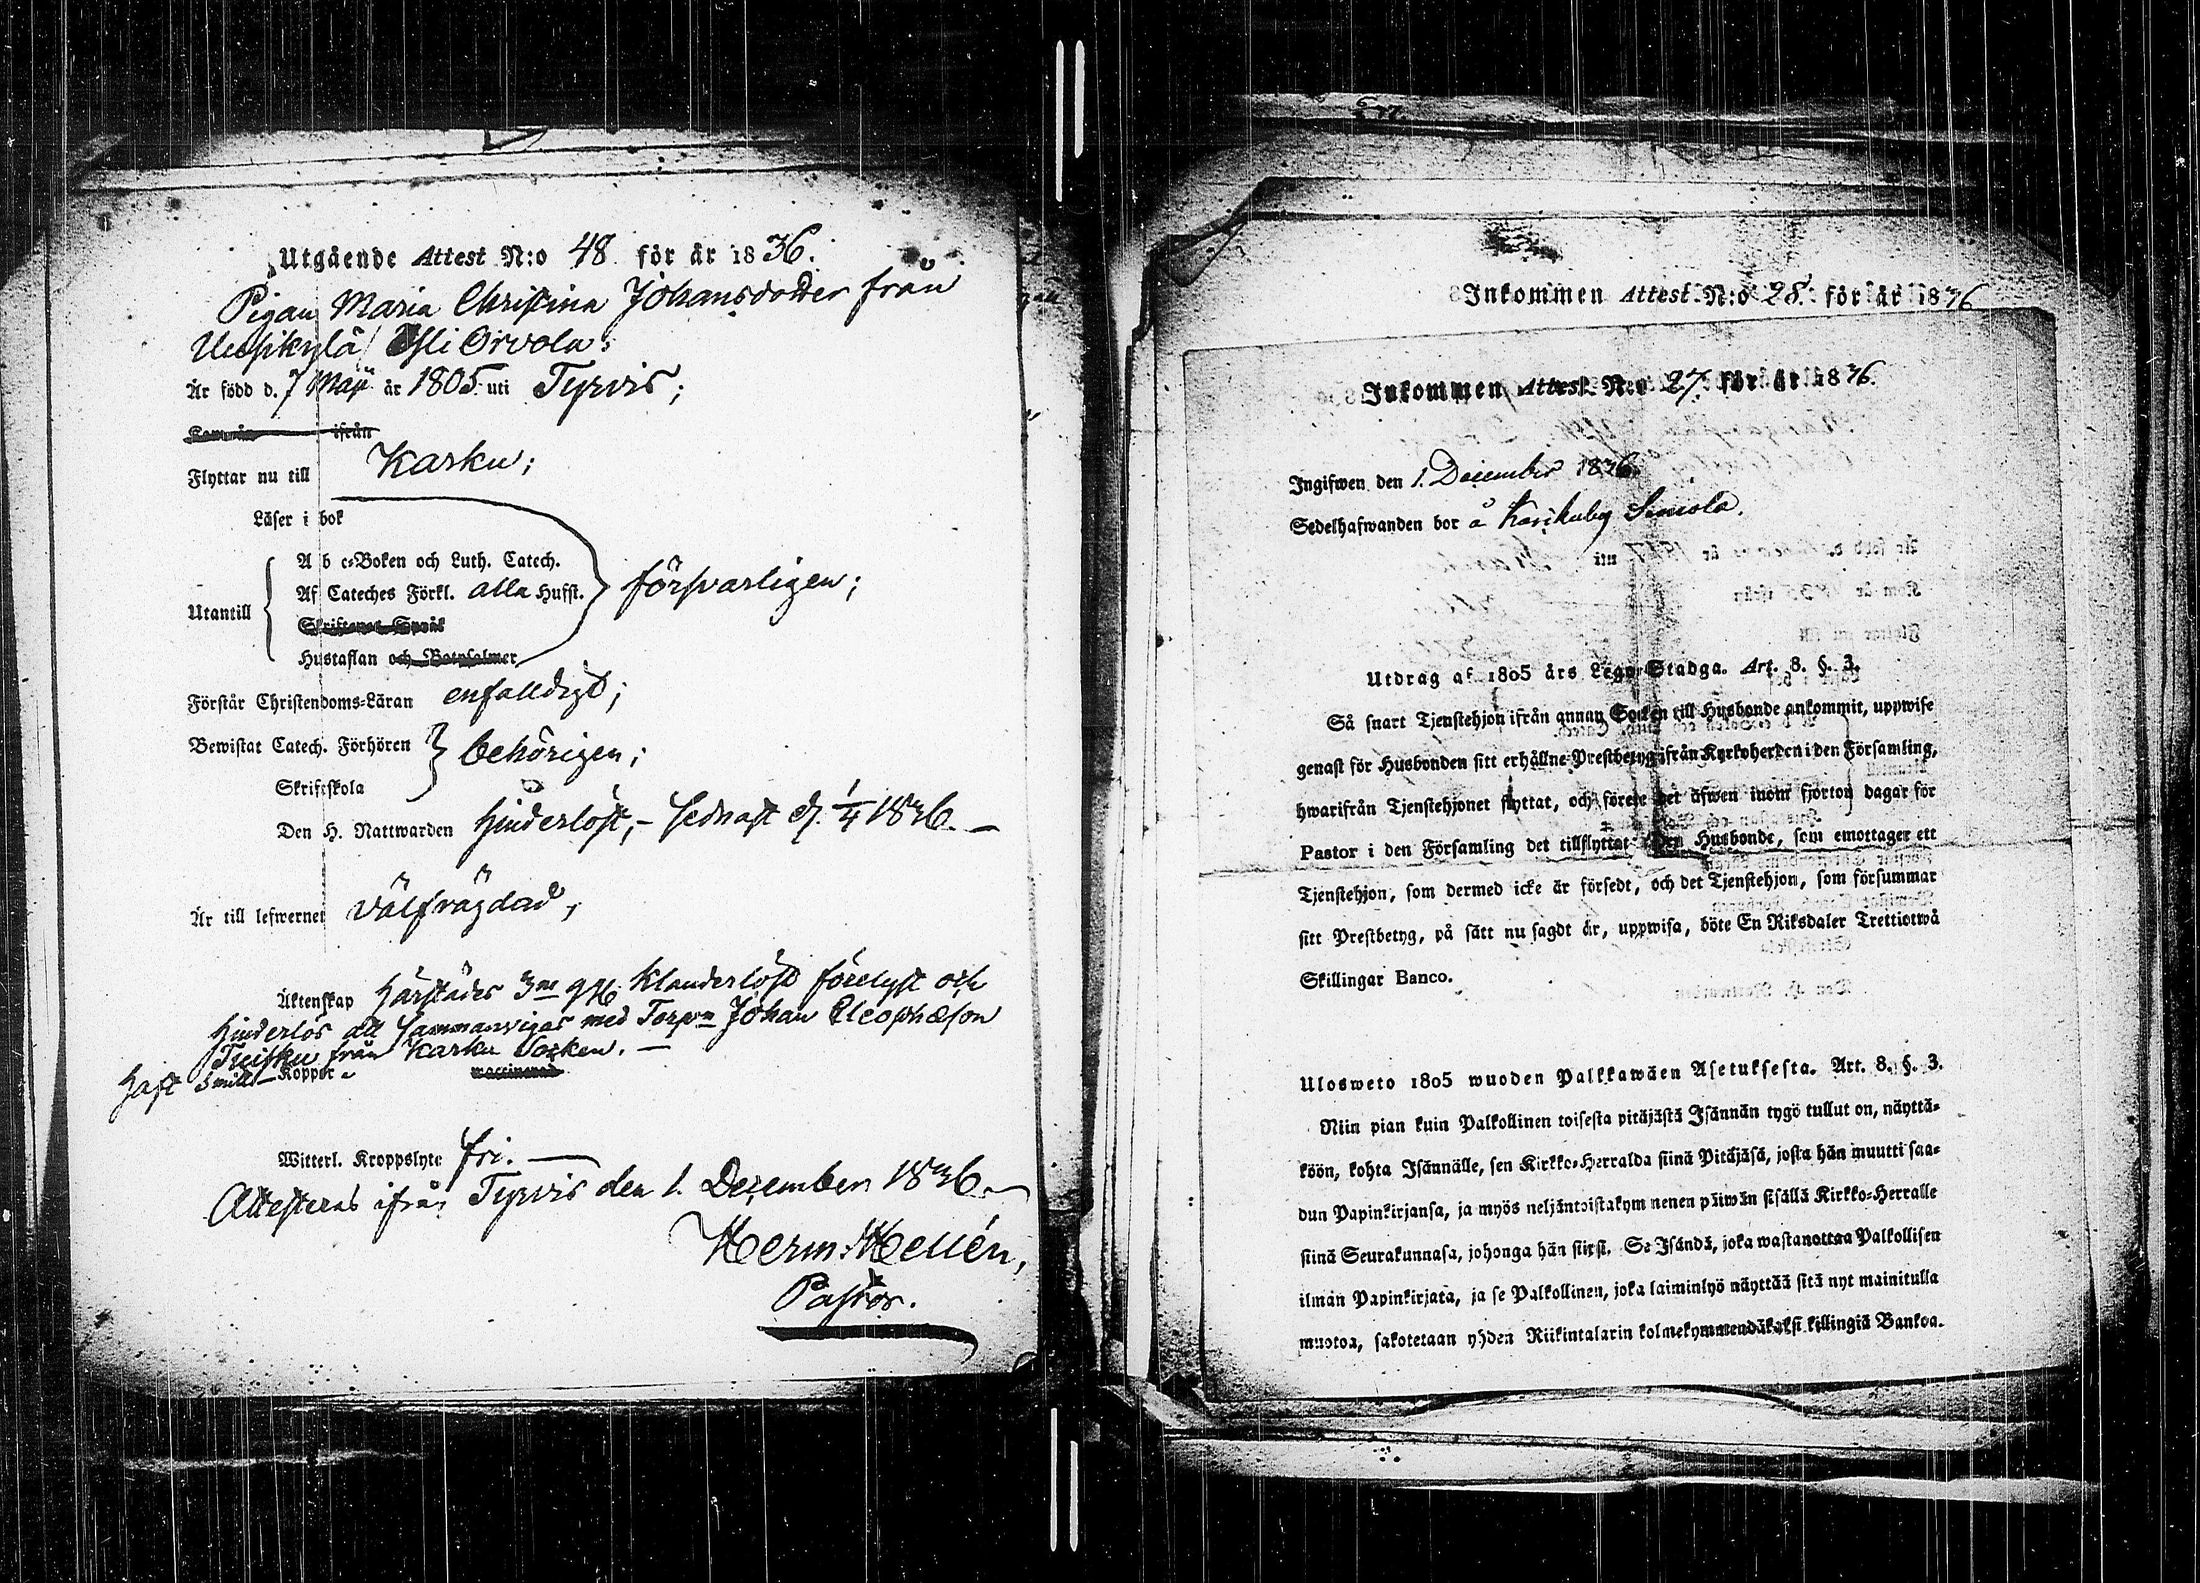 Utgående Attest N:o 48 för år 1836.
Pigan Maria Christina Johansdotter från
Uusikylä Orvola:
Är född d. 7 Maji år 1805 uti Tyrvis;
ifrån
Flyttar nu till Karku;
Läser i bok
A b c-Boken och Luth. Catech.
Utantill Af Cateches Förkl. alla Hufst. försvarligen;
Hustaflan och Botpsalmer
Förstår Christendoms-Läran enfalldigt;
Bewistat Catech. Förhören behörigen;
Skriftskola
Den H. Nattwarden hinderlöst, – sednast d. 1/4 1836. –
Är till lefwernet välfrägdad,
Äktenskap härstädes 3ne ggr klanderlöst förelyst och
hinderlös att sammanvigas med Torpn Johan Cleophæson
från Karku Socken. –
haft Smitt-Koppor
waccinerad
Witterl. Kroppslyte fri. –
Attesteras ifrån Tyrvis den 1. December 1836. –
Herm: Hellén,
Pastor.
Inkommen Attest N:o 28. för år 1836
Inkommen Attest N:o 27. för år 1836.
Ingifwen den 1. December 1836.
Sedelhafwanden bor å Karkuby
Utdrag af 1805 års Lego-Stadga. Art. 8. §. 3.
Så snart Tjenstehjon ifrån annan Socken till Husbonde ankommit, uppwise
genast för Husbonden sitt erhållne Prestbetyg ifrån Kyrkoherden i den Församling,
hwarifrån Tjenstehjonet flyttat, och förete det äfwen inom fjorton dagar för
Pastor i den Församling det tillflyttat. Den Husbonde, som emottager ett
Tjenstehjon, som dermed icke är försedt, och det Tjenstehjon, som försummar
sitt Prestbetyg, på sätt nu sagdt är, uppwisa, böte En Riksdaler Trettiotwå
Skillingar Banco.
Ulosweto 1805 wuoden Palkkawäen Asetuksesta. Art. 8. §. 3.
Niin pian kuin Palkollinen toisesta pitäjästä Isännän tygö tullut on, näyttä-
köön, kohta Isännälle, sen Kirkko-Herralda siinä Pitäjäsä, josta hän muutti saa-
dun Papinkirjansa, ja myös neljäntoistakymmenen päiwän sisällä Kirkko-Herralle
siinä Seurakunnasa, johonga hän siirsi. Se Isändä, joka wastanottaa Palkollisen
ilman Papinkirjata, ja se Palkollinen, joka laiminlyö näyttää sitä nyt mainitulla
muotoa, sakotetaan yhden Riikintalarin kolmekymmendäkaksi killingiä Bankoa.